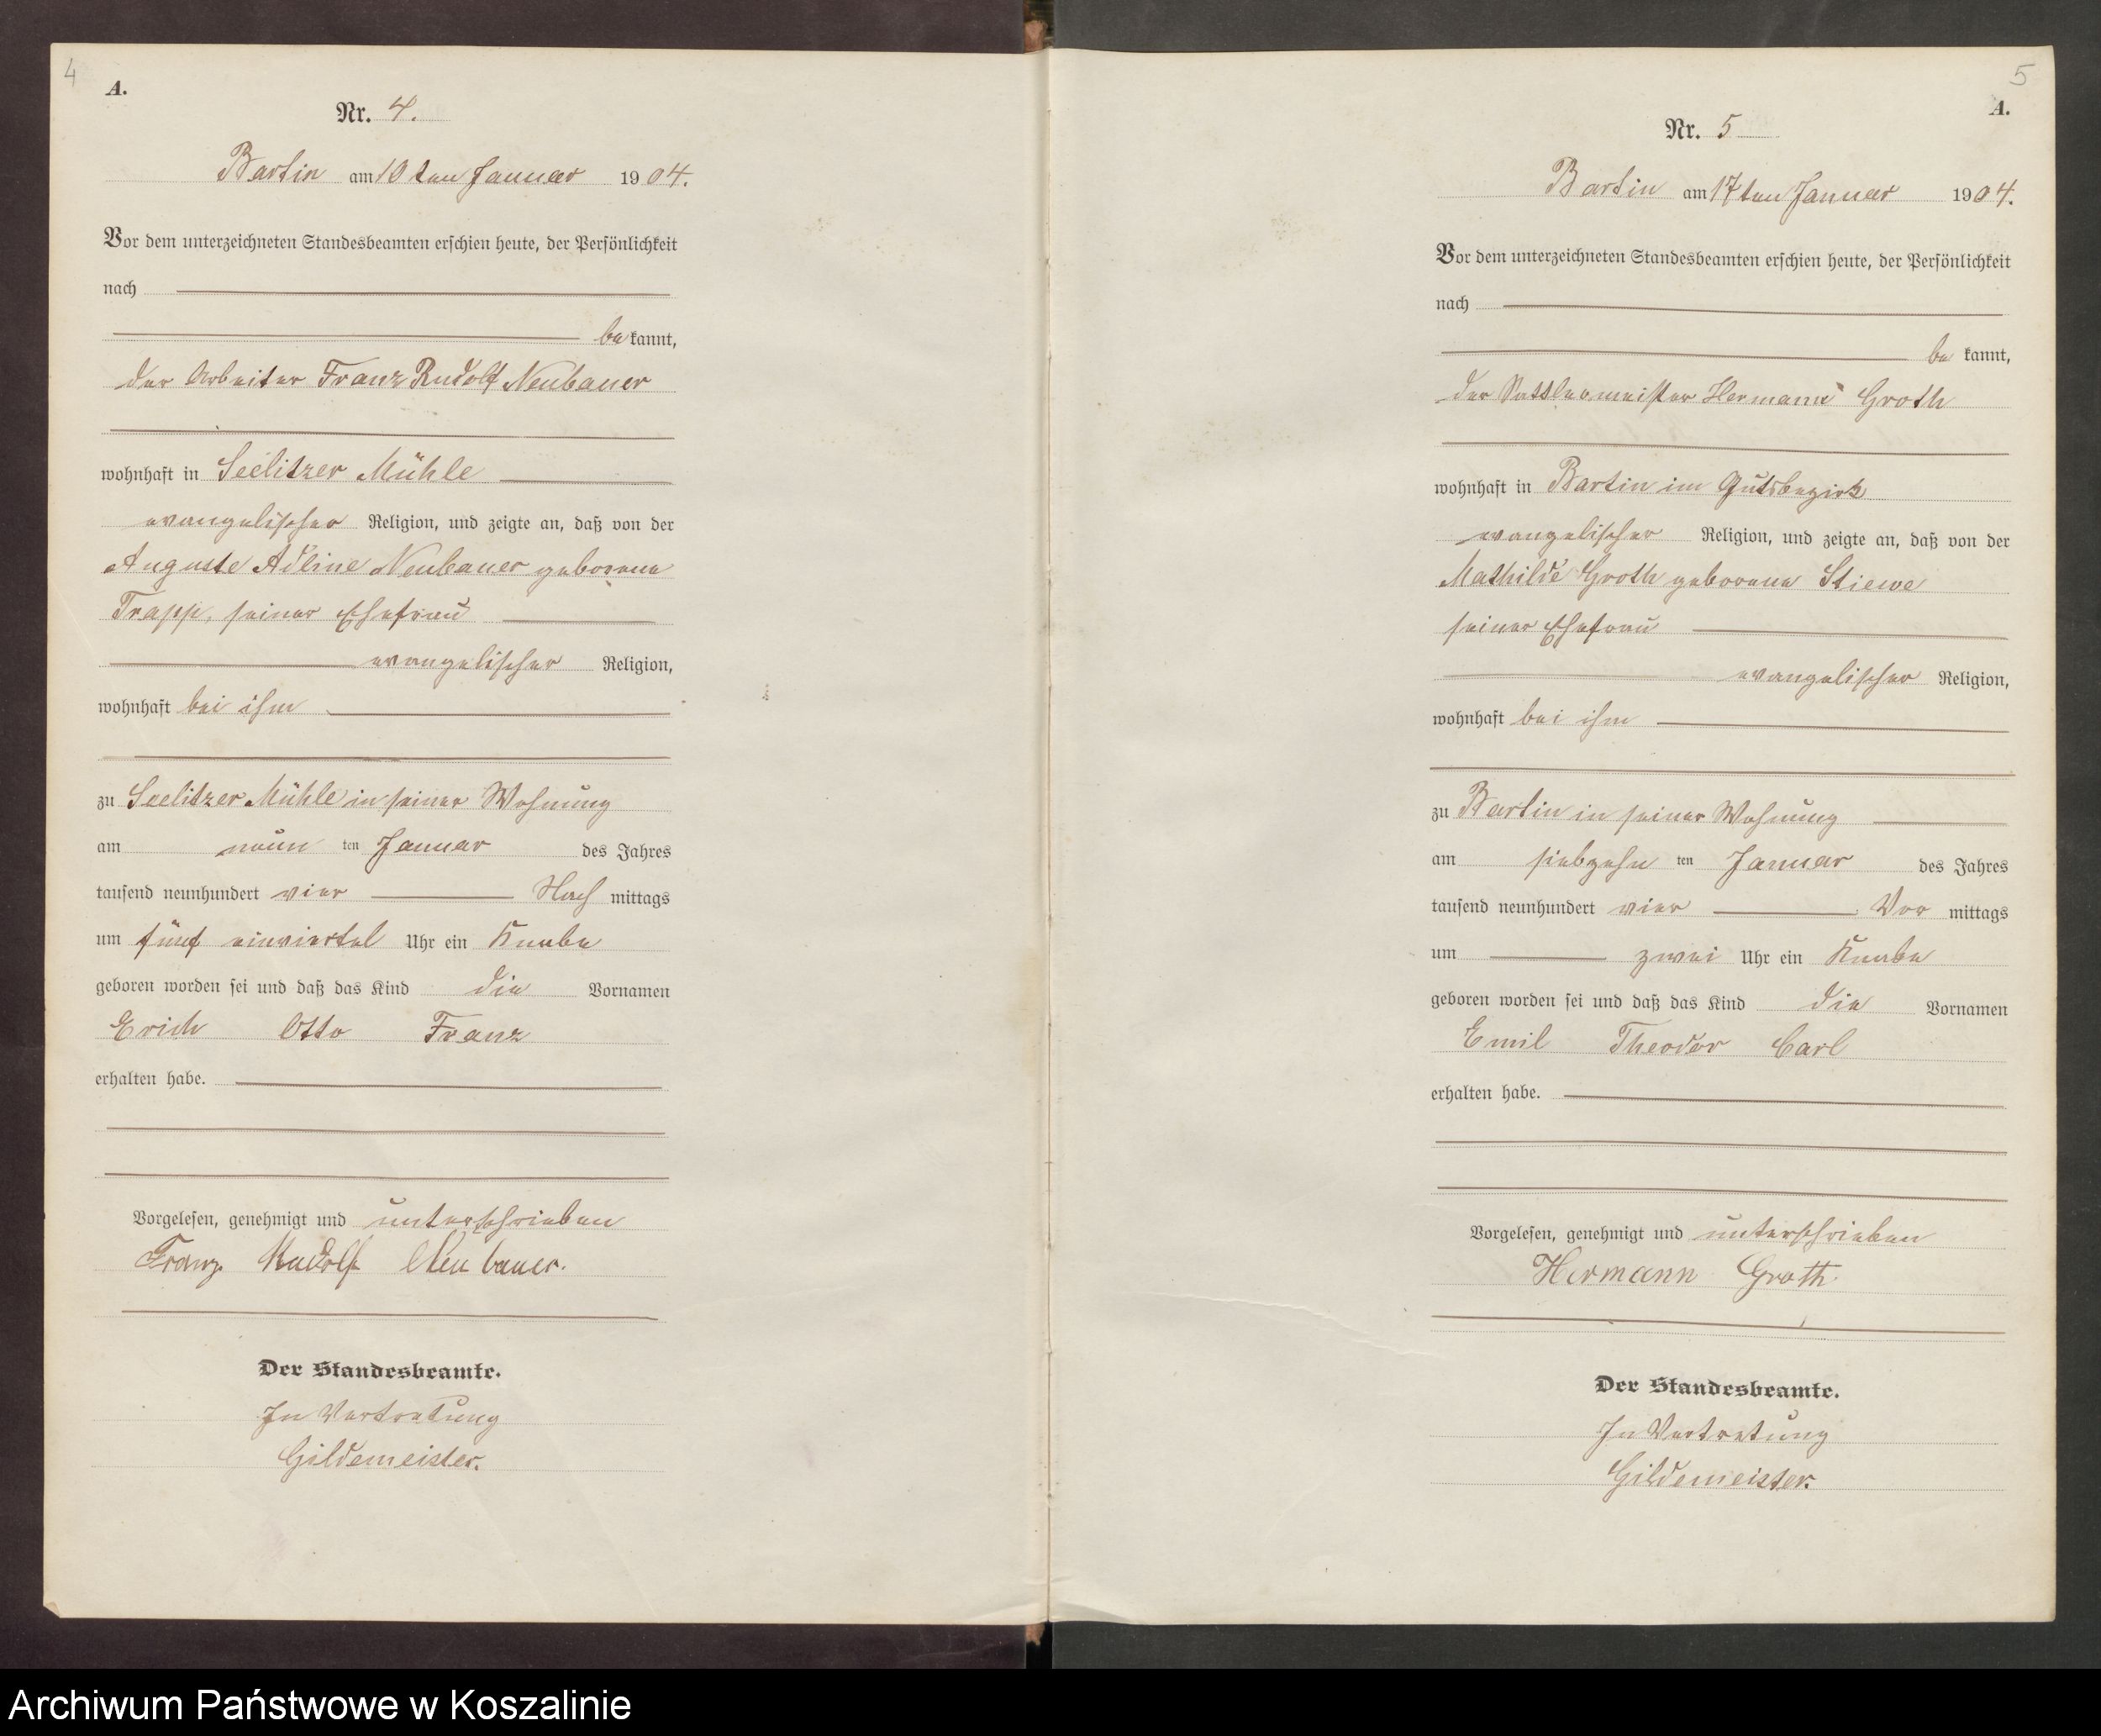 4
A.
Nr. 4.
Bartin am 10ten Januar 1904.
Vor dem unterzeichneten Standesbeamten erschien heute, der Persönlichkeit
nach
bekannt,
der Arbeiter Franz Rudolf Neubauer
wohnhaft in Seelitzer Mühle
evangelischer Religion, und zeigte an, daß von der
Auguste Adline Neubauer geborene
Trapp, seiner Ehefrau
evangelischer Religion,
wohnhaft bei ihm
zu Seelitzer Mühle in seiner Wohnung
am neun ten Januar des Jahres
tausend neunhundert vier Nach mittags
um fünf einviertel Uhr ein Knabe
geboren worden sei und daß das Kind die Vornamen
Erich Otto Franz
erhalten habe.
Vorgelesen, genehmigt und unterschrieben
Franz Rudolf Neubauer.
Der Standesbeamte.
In Vertretung
Gildemeister.
5
A.
Nr. 5
Bartin am 17ten Januar 1904.
Vor dem unterzeichneten Standesbeamten erschien heute, der Persönlichkeit
nach
be kannt,
der Sattlermeister Hermann Groth
wohnhaft in Bartin im Gutsbezirk
evangelischer Religion, und zeigte an, daß von der
Mathilde Groth geborene Stiewe
seiner Ehefrau
evangelischer Religion,
wohnhaft bei ihm
zu Bartin in seiner Wohnung
am siebzehn ten Januar des Jahres
tausend neunhundert vier Vor mittags
um zwei Uhr ein Knabe
geboren worden sei und daß das Kind die Vornamen
Emil Theodor Carl
erhalten habe.
Vorgelesen, genehmigt und unterschrieben
Hermann Groth
Der Standesbeamte.
In Vertretung
Gildemeister.
Archiwum Państwowe w Koszalinie